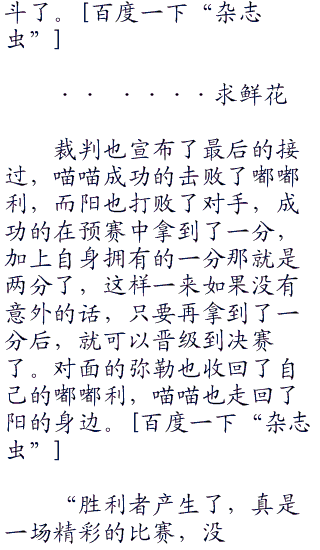 斗了。[百度一下“杂志
虫”]
·· ····求鲜花
裁判也宣布了最后的接
过，喵喵成功的击败了嘟嘟
利，而阳也打败了对手，成
功的在预赛中拿到了一分，
加上自身拥有的一分那就是
两分了，这样一来如果没有
意外的话，只要再拿到了一
分后，就可以晋级到决赛
了。对面的弥勒也收回了自
己的嘟嘟利，喵喵也走回了
阳的身边。[百度一下“杂志
虫”]
“胜利者产生了，真是
一场精彩的比赛，没